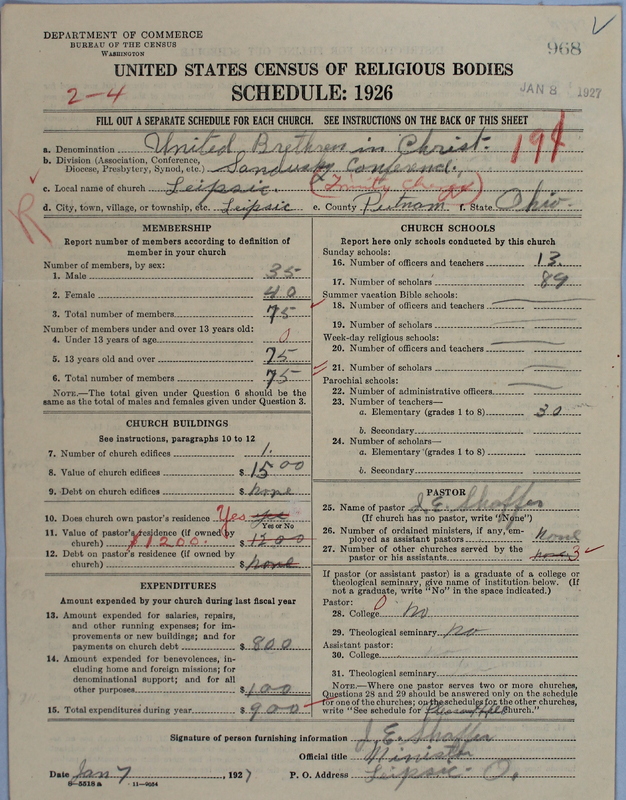 DEPARTMENT OF COMMERCE
BUREAU OF THE CENSUS
WASHINGTON
968
UNITED STATES CENSUS OF RELIGIOUS BODIES
2-4
SCHEDULE: 1926
JAN 8 1927
FILL OUT A SEPARATE SCHEDULE FOR EACH CHURCH. SEE INSTRUCTIONS ON THE BACK OF THIS SHEET
a. Denomination United Brethren in Christ.
191
b. Division (Association, Conference, Diocese, Presbytery, Synod, etc.) Sandusky Conference.
c. Local name of church Leipsic. (Trinity
d. City, town, village, or township, etc. Leipsic e. County Putnam f. State Ohio
R
MEMBERSHIP
Report number of members according to definition of
member in your church
Number of members, by sex:
1. Male 35
2. Female 40
3. Total number of members 75
Number of members under and over 13 years old:
4. Under 13 years of age 0
5. 13 years old and over 75
6. Total number of members 75
NOTE.—The total given under Question 6 should be the
same as the total of males and females given under Question 3.
CHURCH BUILDINGS
See instructions, paragraphs 10 to 12
7. Number of church edifices 1.
8. Value of church edifices $ 1500
9. Debt on church edifices $ None
10. Does church own pastor's residence Yes Yes
Yes or No
11. Value of pastor's residence (if owned by
church) $1200. $ 1200
12. Debt on pastor's residence (if owned by
church) $ None
EXPENDITURES
Amount expended by your church during last fiscal year
13. Amount expended for salaries, repairs,
and other running expenses; for im-
provements or new buildings; and for
payments on church debt $ 800
14. Amount expended for benevolences, in-
cluding home and foreign missions; for
denominational support; and for all
other purposes $ 100
15. Total expenditures during year $ 900
CHURCH SCHOOLS
Report here only schools conducted by this church
Sunday schools:
16. Number of officers and teachers 13.
17. Number of scholars 89
Summer vacation Bible schools:
18. Number of officers and teachers
19. Number of scholars
Week-day religious schools:
20. Number of officers and teachers
21. Number of scholars
Parochial schools:
22. Number of administrative officers
23. Number of teachers—
a. Elementary (grades 1 to 8) 30
b. Secondary
24. Number of scholars—
a. Elementary (grades 1 to 8)
b. Secondary
PASTOR
25. Name of pastor J. E. Shaffer
(If church has no pastor, write "None")
26. Number of ordained ministers, if any, em-
ployed as assistant pastors None
27. Number of other churches served by the
pastor or his assistants None 3
If pastor (or assistant pastor) is a graduate of a college or
theological seminary, give name of institution below. (If
not a graduate, write "No" in the space indicated.)
Pastor:
28. College 0 No
29. Theological seminary No
Assistant pastor:
30. College
31. Theological seminary
NOTE.—Where one pastor serves two or more churches,
Questions 28 and 29 should be answered only on the schedule
for one of the churches; on the schedules for the other churches,
write "See schedule for church."
Signature of person furnishing information J. E. Shaffer
Official title Minister
Date Jan 7, 1927 P. O. Address Leipsic - O.
8-5518 a 11-9054